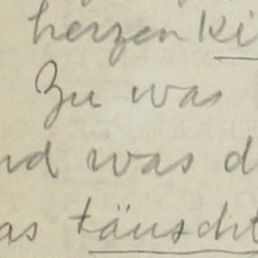 herzen Ki
Zu was
nd was d
as täuscht